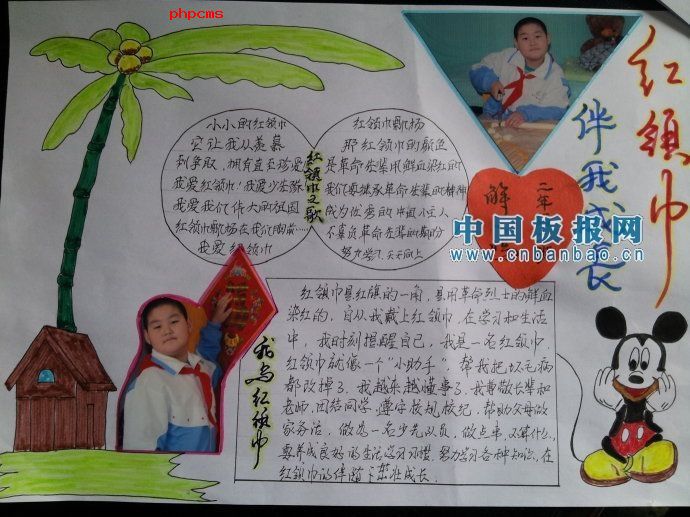 phpcms
红领巾
伴我成长
小小的红领巾
它让我从羡慕
到争取，拥有直至珍爱
我爱红领巾！我爱少先队
我爱我们伟大的祖国
红领巾飘扬在我们胸前
我爱红领巾
红领巾之歌
红领巾飘扬
那红领巾的颜色
是革命先辈用鲜血染红的
我们要继承革命先辈的精神
成为优秀的中国小主人
不辜负革命先辈的期望
努力学习，天天向上
二年
解
中国板报网
www.cnbanbao.cn
我与红领巾
红领巾是红旗的一角，是用革命烈士的鲜血
染红的，自从我戴上红领巾，在学习和生活
中，我时刻提醒自己，我是一名红领巾
红领巾就像一个“小助手”，帮我把坏毛病
都改掉了，我越来越懂事了，我尊敬长辈和
老师，团结同学，遵守校规校纪，帮助父母做
家务活，做为一名少先队员，做点事，不算什么，
要养成良好的生活学习习惯，努力学习各种知识，在
红领巾的伴随下茁壮成长．